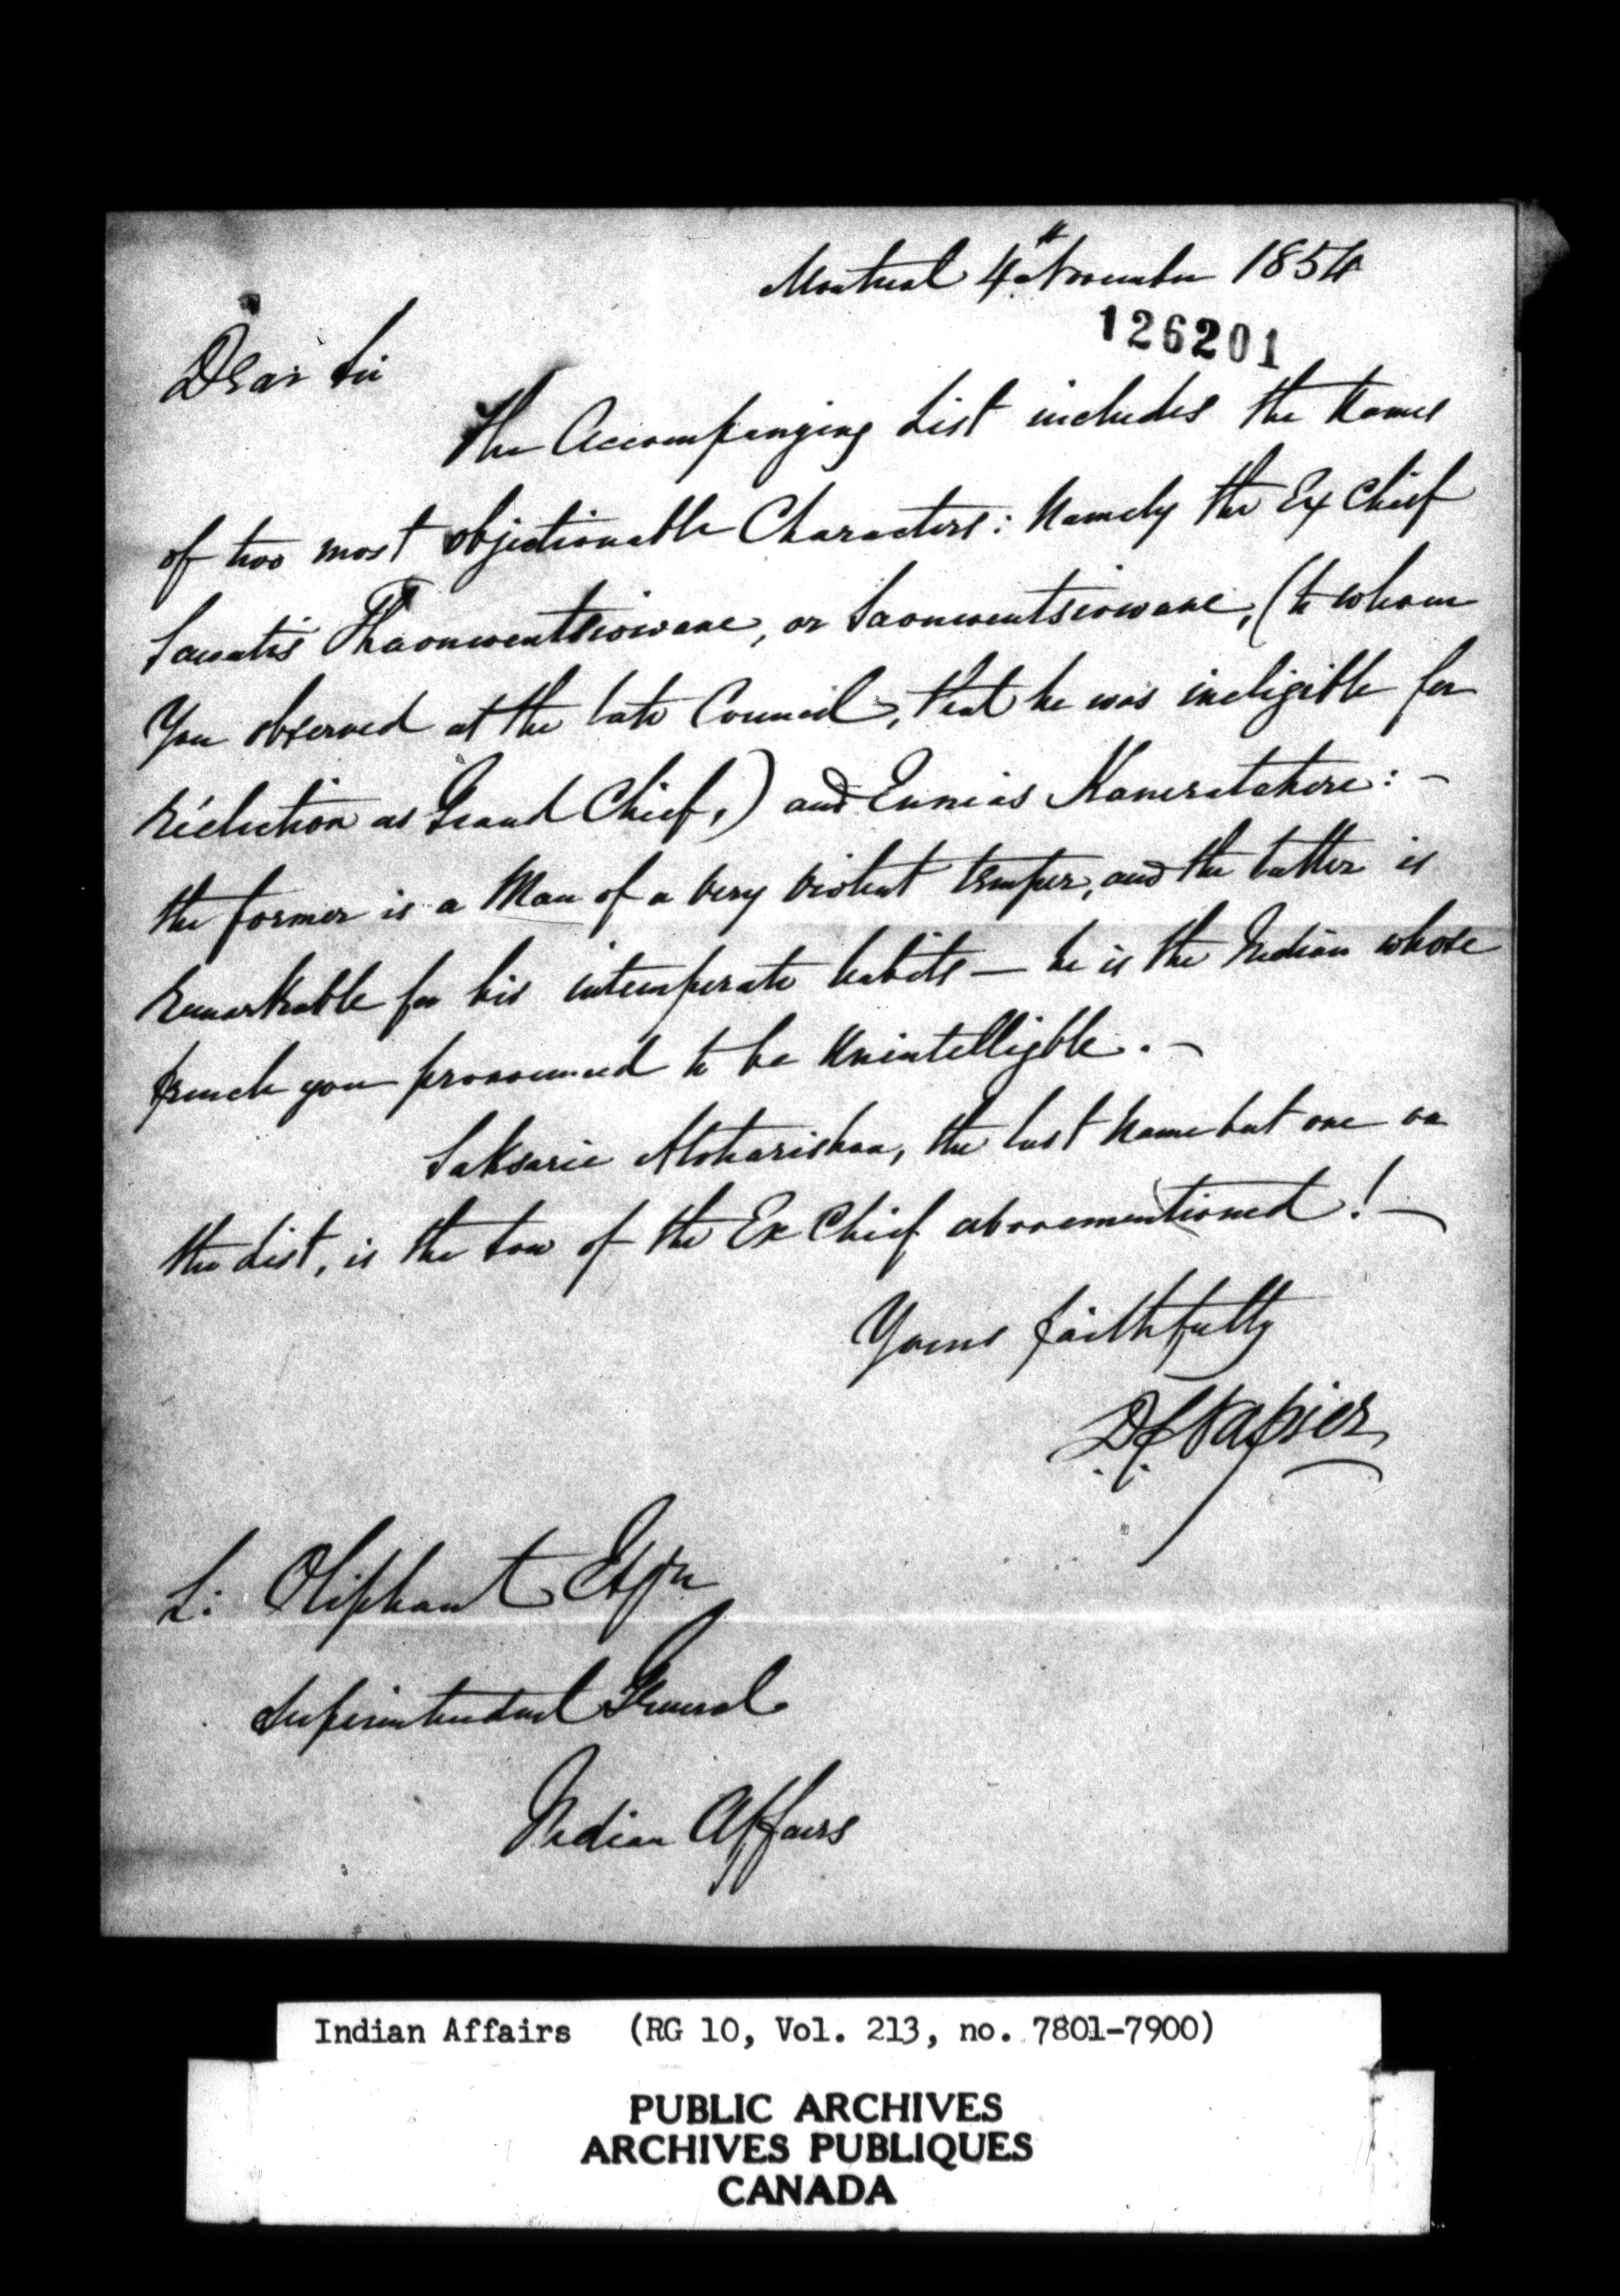 Montreal 4th November 1854
126201
Dear Sir
The Accompanying List includes the Names
of two most objectionable Characters: Namely the Ex Chief
Sawatis Thaonwentsiowane, or Saonwentsiowane, (to whom
You observed at the late Council, that he was ineligible for
réelection as Grand Chief,) and Ennias Kaneratahere: —
the former is a Man of a very violent temper, and the latter is
remarkable for his intemperate habits — he is the Indian whose
french you pronounced to be Unintelligble. —
Saksarie Atoharishon, the last Name but one on
the List, is the Son of the Ex Chief abovementioned! —
Yours faithfully
D C Napier
L: Oliphant Esqre
Superintendent General
Indian Affairs
Indian Affairs (RG 10, Vol. 213, no. 7801-7900)
PUBLIC ARCHIVES
ARCHIVES PUBLIQUES
CANADA